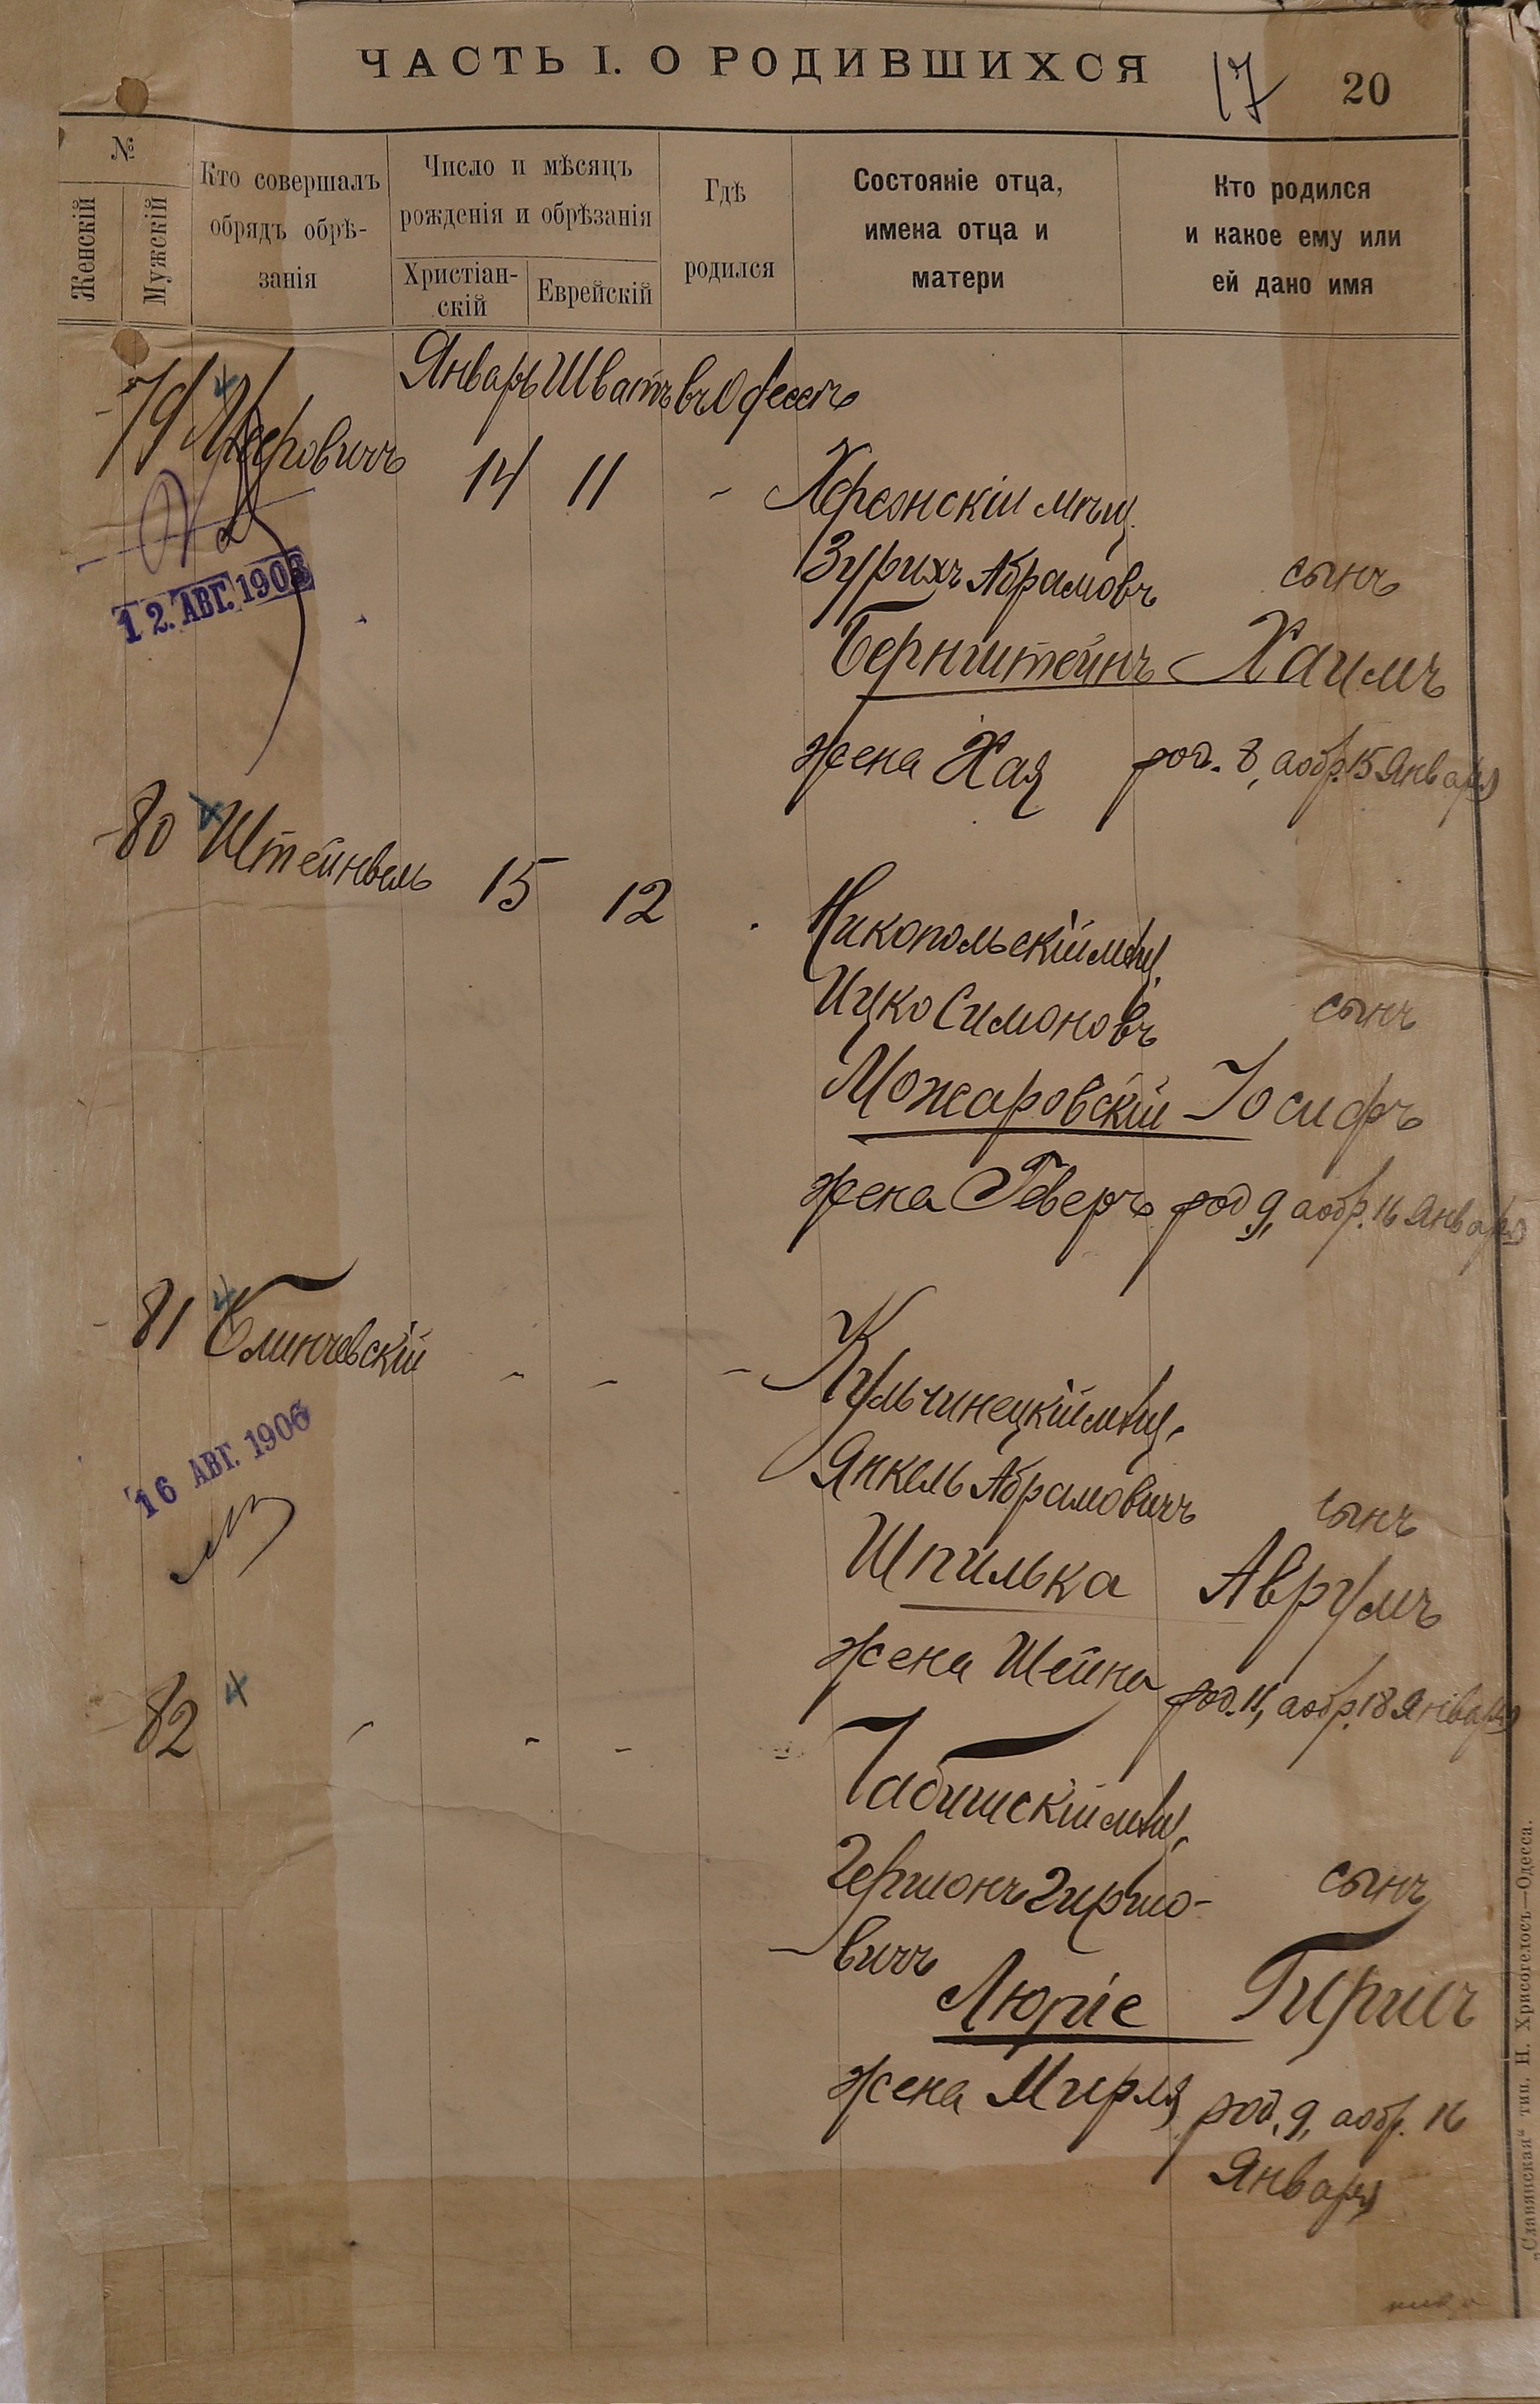 ЧАСТЬ I. О РОДИВШИХСЯ
17 20
№
Женскій
Мужскій
Кто совершалъ
обрядъ обрѣ-
занія
Число и мѣсяцъ
рожденія и обрѣзанія
Христіан-
скій
Еврейскій
Гдѣ
родился
Состояніе отца,
имена отца и
матери
Кто родился
и какое ему или
ей дано имя
Январь Шватъ въ Одессѣ
79 Мееровичъ 14 11 -
12. АВГ. 190
Херсонскій мѣщ.
Зурихъ Абрамовъ сынъ
Бернштейнъ Хаимъ
жена Хая род. 8, а обр. 15 Января
80 Штейнвель 15 12
Никопольскій мѣщ.
Ицко Симоновъ сынъ
Можаровскій Іосифъ
жена Геверъ род 9, а обр. 16 Января
81 Блинчевскій - - -
16 АВГ. 1906
Кульчинецкій мѣщ.
Янкель Абрамовичъ сынъ
Шпилька Аврумъ
жена Шейна род. 11, а обр. 18 Января
82 4 - - -
Чабишскій мѣщ.
Гершонъ Гиршо-
вичъ сынъ
Люріе Гиршъ
жена Мирля род. 9, а обр. 16
Января
„Славянская“ тип. Н. Хрисогелосъ—Одесса.